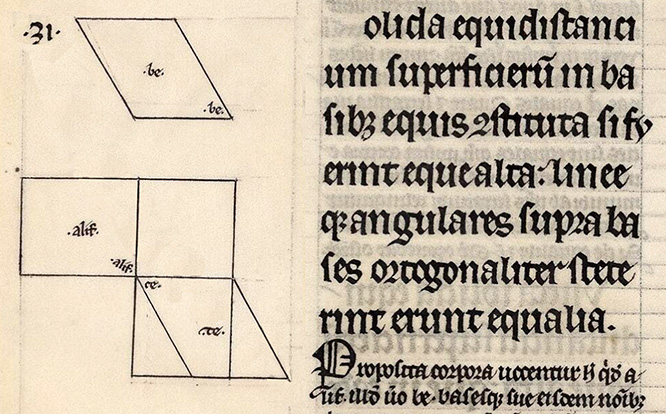 .31.
.be.
.be.
.alif.
.alif.
te.
.te.
olida equidistanci
um superficierū in ba
sibꝫ equis ꝯstituta si fu
erint eque alta: linee
qꝫ angulares supra ba
ses ortogonaliter stete
rint erunt equalia.
Proposita corpora vocentur
. be. basesqꝫ sue eisdem noībꝫ